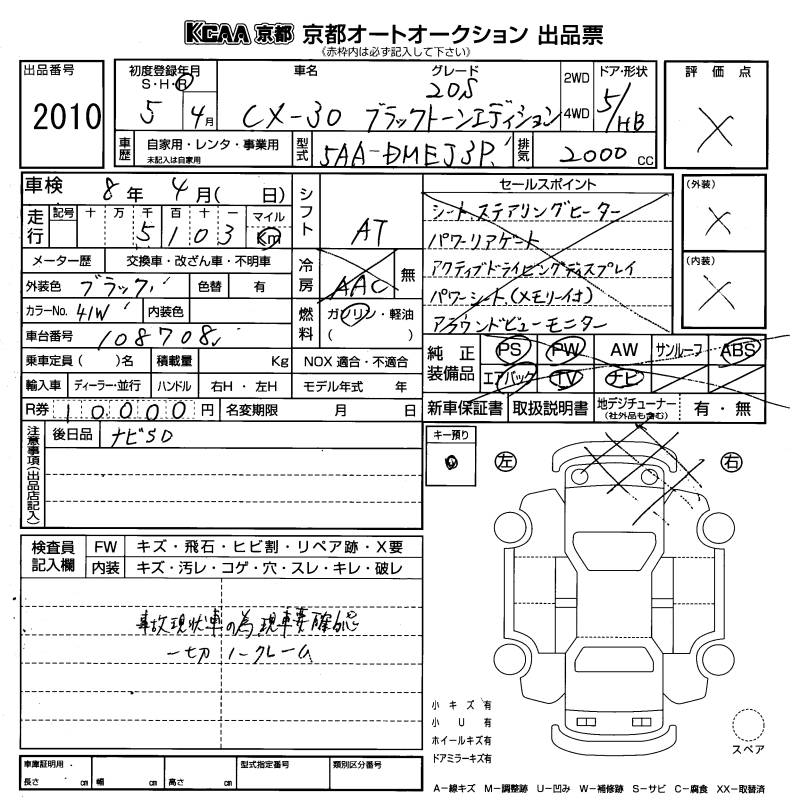 KCAA 京都 京都オートオークション 出品票
(赤枠内は必ず記入して下さい)
出品番号
2010
初度登録年月
S・H・R
5 4月
車名
CX-30 ブラックトーンエディション
グレード
20S
2WD
4WD
ドア・形状
5/HB
評価点
X
車歴
自家用・レンタ・事業用
未記入は自家用
型式
5AA-DMEJ3P
排気
2000 CC
車検 8年 4月( 日)
走行
記号 十 万 千 百 十 一 マイル
5 1 0 3 Km
シフト
AT
メーター歴 交換車・改ざん車・不明車
外装色 ブラック 色替 有
カラーNo. 41W 内装色
冷房
AAC 無
燃料
ガソリン・軽油
( )
車台番号 108708
乗車定員 ( )名 積載量 Kg NOX 適合・不適合
輸入車 ディーラー・並行 ハンドル 右H・左H モデル年式 年
R券 10,000円 名変期限 月 日
セールスポイント
シート、ステアリングヒーター
パワーリアゲート
アクティブドライビングディスプレイ
パワーシート(メモリー付)
アラウンドビューモニター
(外装)
X
(内装)
X
純正装備品
PS PW AW サンルーフ ABS
エアバック TV ナビ
新車保証書 取扱説明書 地デジチューナー 有・無
(社外品も含む)
注意事項(出品店記入)
後日品 ナビSD
キー預り
左
右
検査員記入欄
FW キズ・飛石・ヒビ割・リペア跡・X要
内装 キズ・汚レ・コゲ・穴・スレ・キレ・破レ
事故現状車の為現車要確認
一切ノークレーム
小キズ有
小U有
ホイールキズ有
ドアミラーキズ有
スペア
車庫証明用・
長さ cm 幅 cm 高さ cm
型式指定番号
類別区分番号
A-線キズ M-調整跡 U-凹み W-補修跡 S-サビ C-腐食 XX-取替済